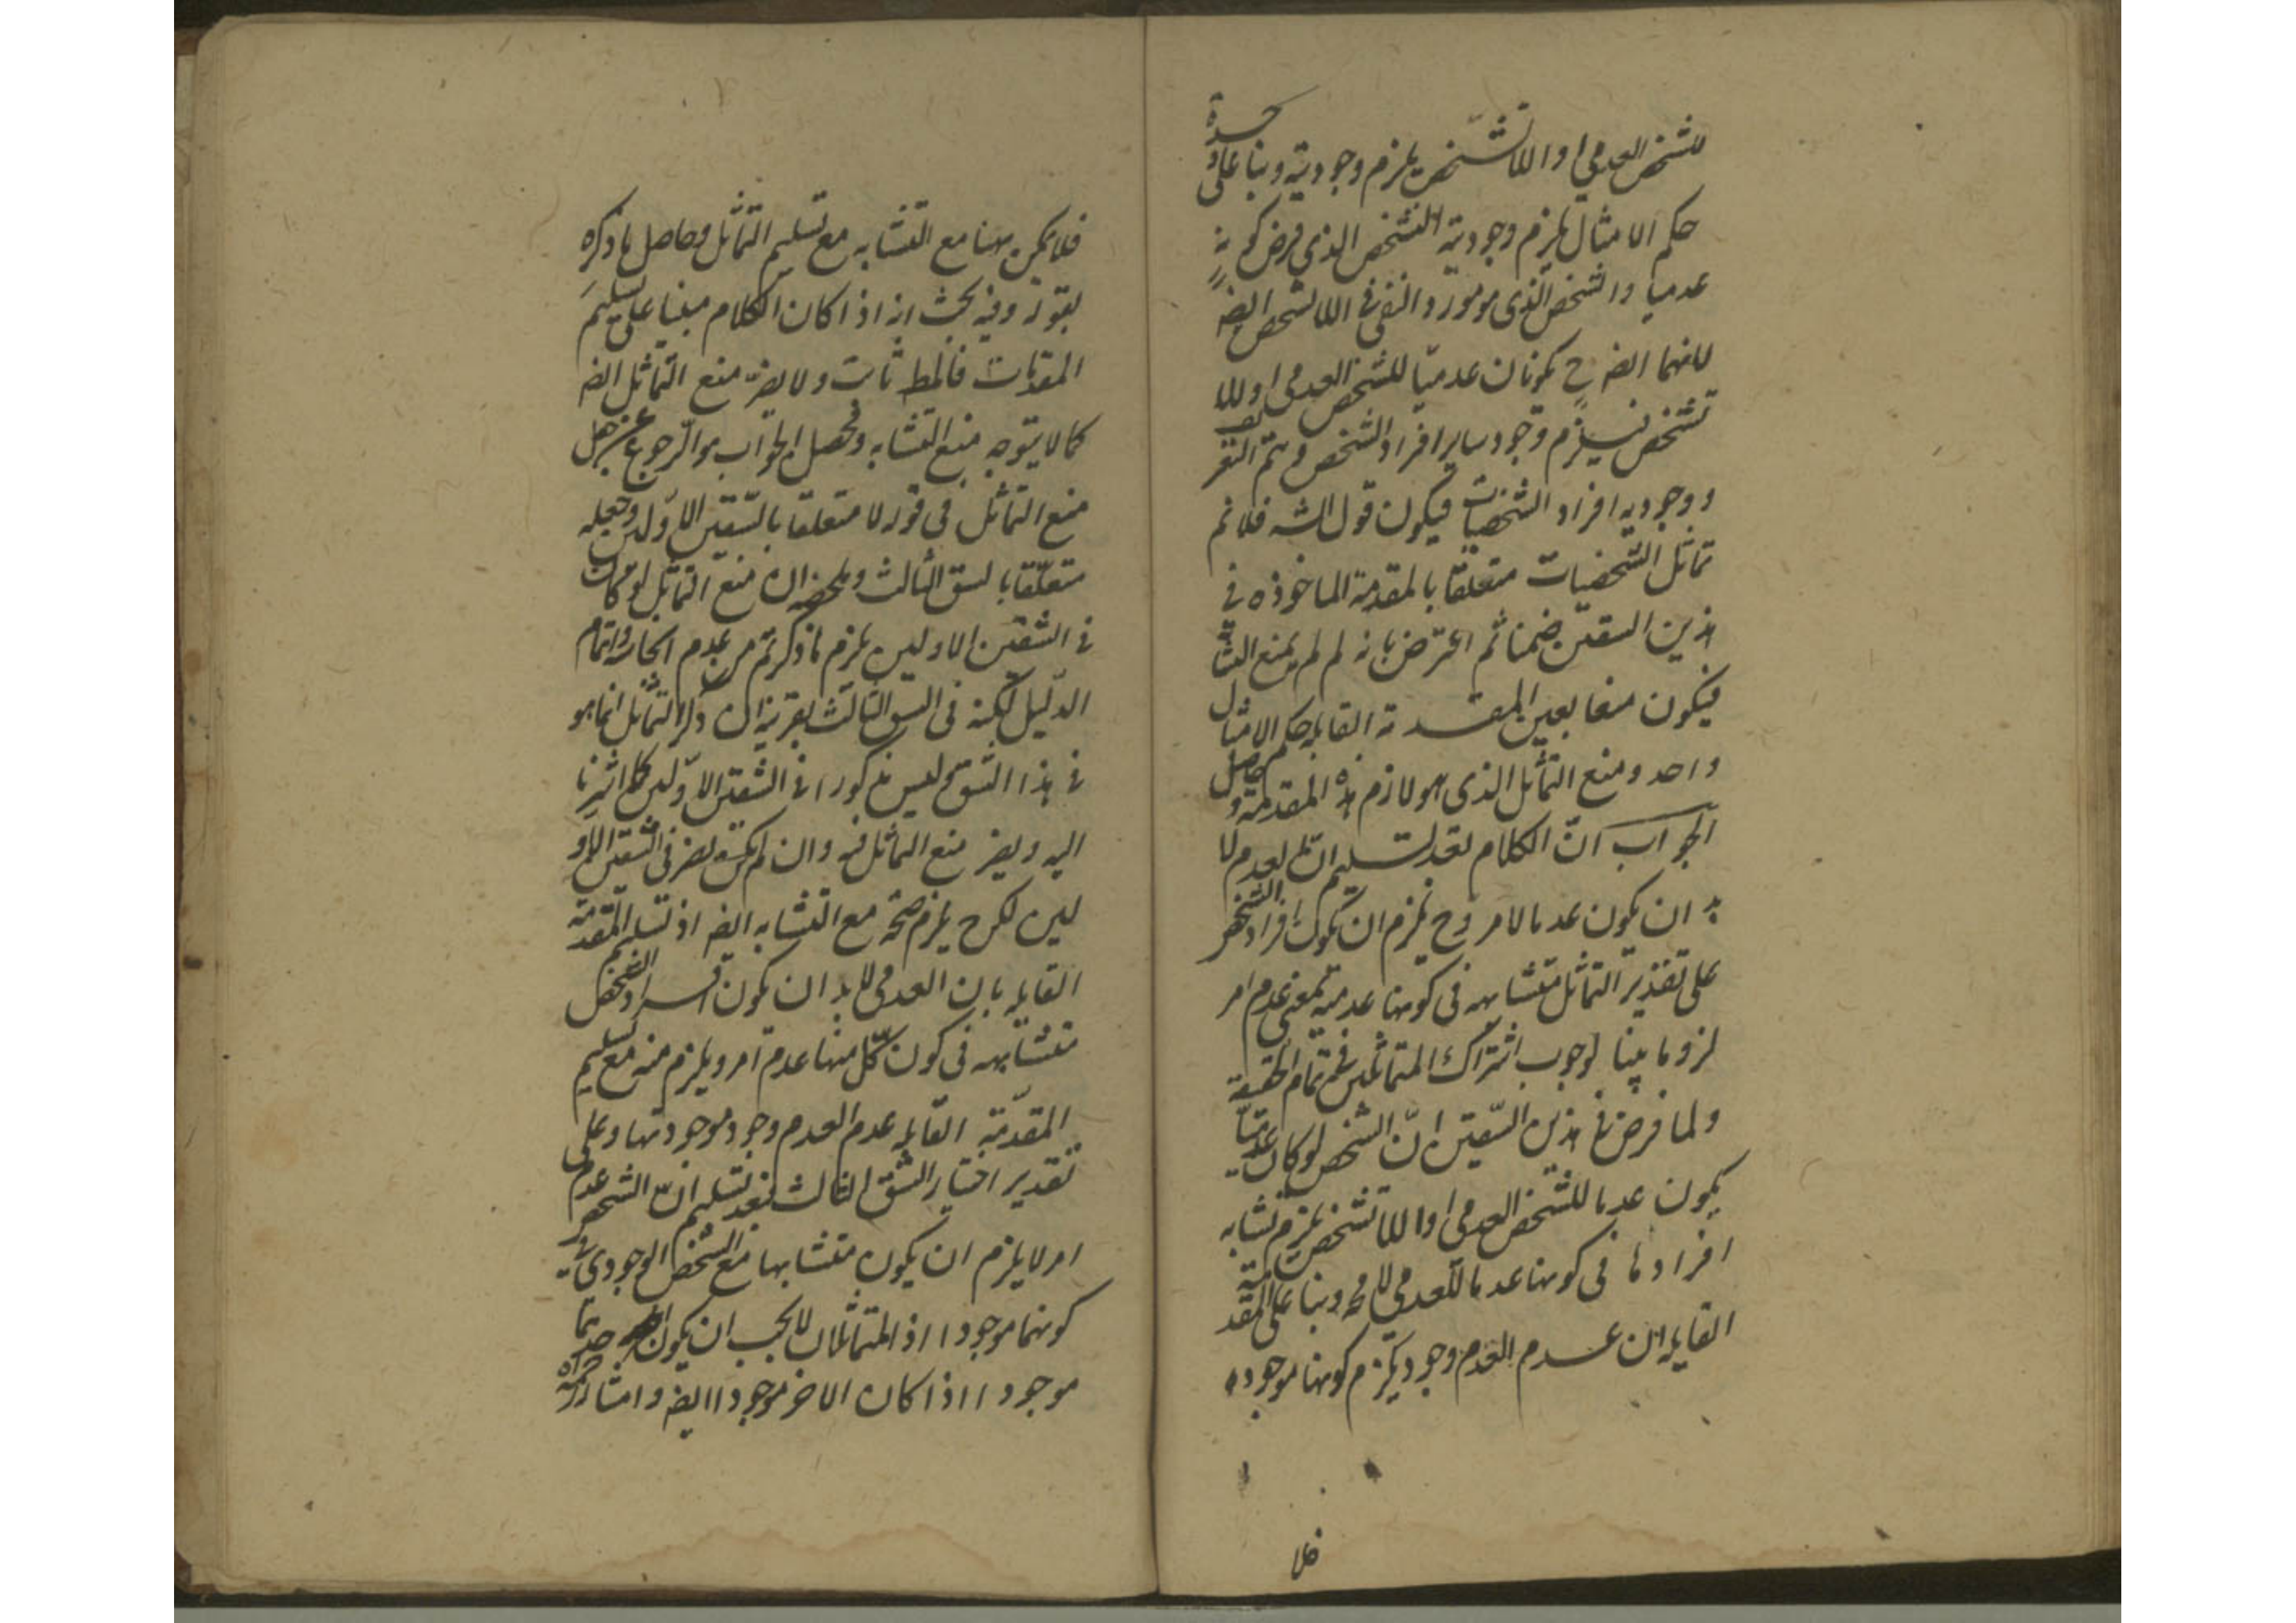 للشخص العدمي او اللاتشخص يلزم وجوديته وبنا على وحدة
حكم الامثال يلزم وجودية التشخص الذي فرض كونه
عدميا والشخص الذى هو مورد النفى فى اللاتشخص ايضه
لانهما ايضه ح يكونان عدميا للشخص العدمى او للا
تشخص فيلزم وجود ساير افراد الشخص ويتم التقر
ووجوديه افراد الشخصيات فيكون قول الشه فلانم
تماثل الشخصيات متعلقا بالمقدمة الماخوذه فى
هذين الشقين ضمنا ثم اعترض بانه لم لم يمنع التشا
فيكون منعا بعين المقدمة القايله حكم الامثال
واحد ومنع التماثل الذى هو لازم هذه المقدمة وحاصل
الجواب انّ الكلام بعد تسليم ان العدم لا
بد ان يكون عدما لامر وح يلزم ان يكون افراد الشخص
على تقدير التماثل متشابهه فى كونها عدمية بمعنى عدم امر
لزوما بينا لوجوب اشتراك المتماثلين فى تمام الحقيقة
ولما فرض فى هذين الشقين انّ الشخص لو كان عدميّا
يكون عدما للشخص العدمى او اللاتشخص يلزم تشابه
افرادها فى كونها عدما للعدمى لامحه وبنا على المقدمة
القايله ان عدم العدم وجود يلزم كونها موجوده
فلا
فلايمكن هنا منع التشابه مع تسليم التماثل وحاصل ما ذكره
بقوله وفيه بحث انه اذا كان الكلام مبنيا على تسليم
المقدمات فالمط ثابت ولا يضر منع التماثل ايضه
كما لا يتوجه منع التشابه ومحصل الجواب هو الرجوع عن جعل
منع التماثل فى قوله لا متعلقا بالشقين الاوّلين وجعله
متعلّقا بالشق الثالث وملخصه ان منع التماثل لو كان
فى الشقين الاولين يلزم ما ذكرتم من عدم
الدليل لكنه فى الشق الثالث بقرينة ان ذكر التماثل انما هو
فى هذا الشق ليس مذكورا فى الشقين الاوّلين كما اشرنا
اليه ويضر منع التماثل فيه وان لم يكن يضر فى الشقين الاو
لين لكن ح يلزم صحة منع التشابه ايضه اذ تسليم المقدمة
القايله بان العدمى لابد ان يكون افراد الشخص
متشابهه فى كون كلّ منها عدم امر ويلزم منه مع تسليم
المقدّمة القايله عدم العدم وجود موجوديتها وعلى
تقدير اختيار الشق الثالث فبعد تسليم انّ الشخص عدم
امر لا يلزم ان يكون متشابها مع الشخص الوجودى فى
كونهما موجودا اذ المتماثلان لايجب ان يكون احدهما
موجودا اذا كان الاخر موجودا ايضه وامتناز